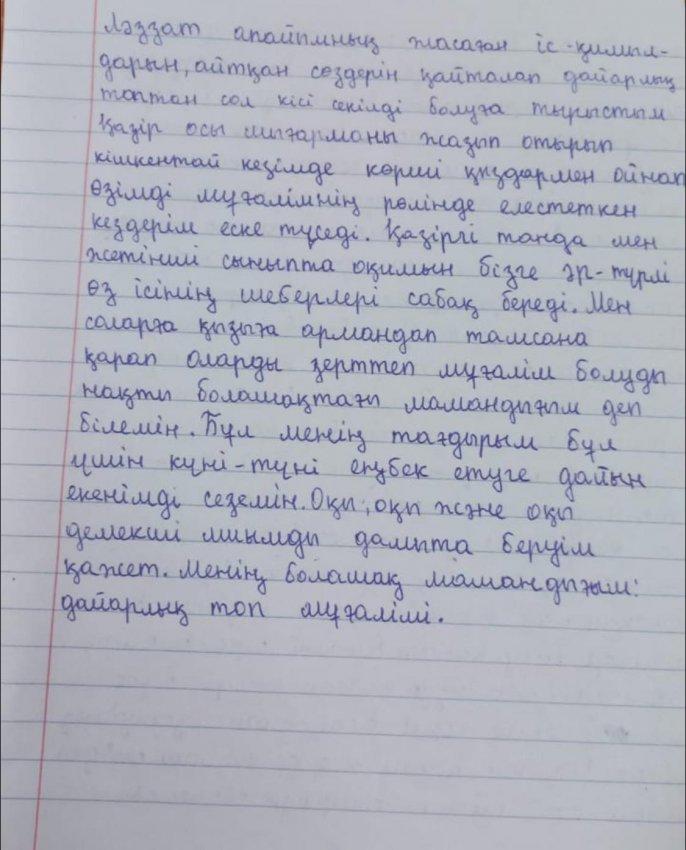 Ләззат апайымның жасаған іс-қимыл-
дарын, айтқан сөздерін қайталап дайарлық
топтан сол кісі секілді болуға тырыстым
Қазір осы шығарманы жазып отырып
кішкентай кезімде көрші қыздармен ойнап
өзімді мұғалімнің рөлінде елестеткен
кездерім еске түседі. Қазіргі таңда мен
жетінші сыныпта оқимын бізге әр-түрлі
өз ісінің шеберлері сабақ береді. Мен
соларға қызыға армандап тамсана
қарап оларды зерттеп мұғалім болуды
нақты болашақтағы мамандығым деп
білемін. Бұл менің тағдырым бұл
үшін күні-түні еңбек етуге дайын
екенімді сеземін. Оқы, оқы және оқы
демекші миымды дамыта беруім
қажет. Менің болашақ мамандығым:
дайарлық топ мұғалімі.